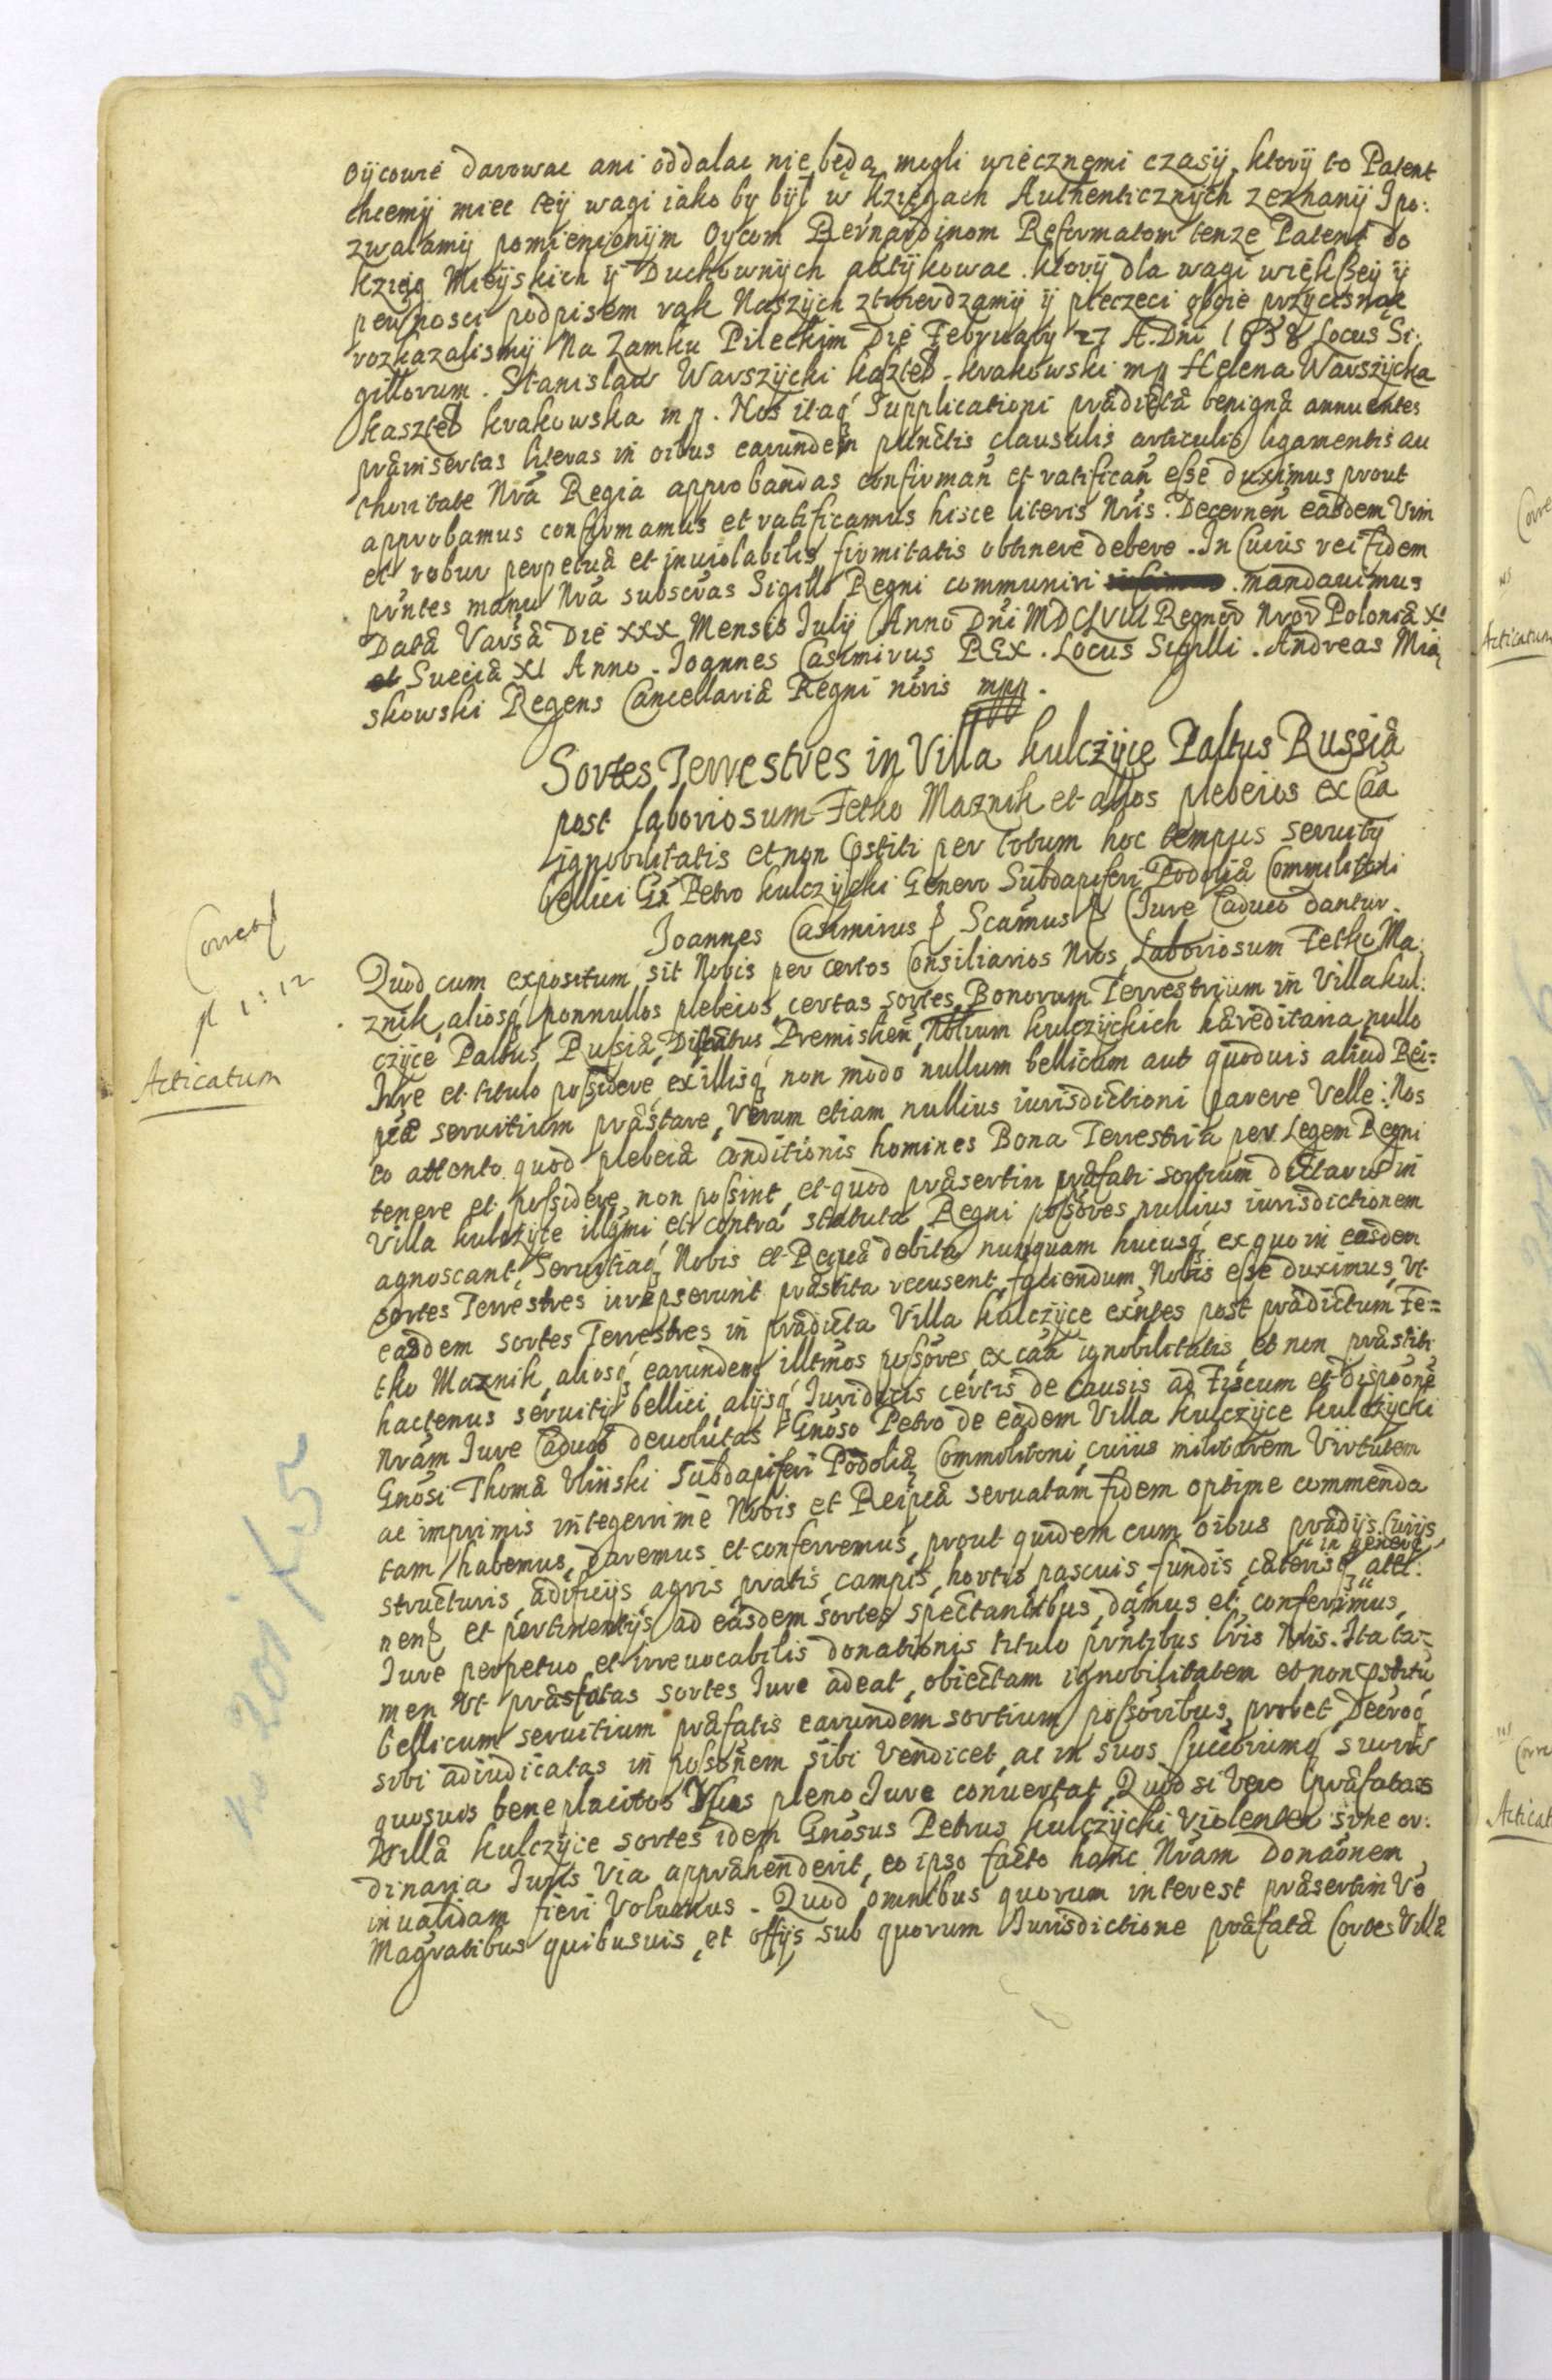 Oÿcowie darowac ani oddalac nie będą mogli wiecznemi czasÿ, ktorÿ to Patent
chcemÿ miec teÿ wagi iako by bÿł w kzięgach Authenticznÿch zeznanÿ I po:
zwalamÿ pomienionÿm Oycom Bernardinom Reformatom tenze Patent do
kziąg Mieÿskich ÿ Duchownÿch aktÿkowac. ktorÿ dla wagi większeÿ ÿ
pewnosci podpisem rąk Naszÿch ztwierdzamÿ ÿ pieczęci oboie przÿcisnąc
rozkazalismÿ Na Zamku Pileckim Die Februarÿ 27 A. Dni 1658 Locus Si:
gillorum. Stanislaw Warszÿcki kasztel. krakowski mp Helena Warszÿcka
kasztel krakowska mp. Nos itaq Supplicationi prædictæ benignæ annuentes
præinsertas literas in oibus earundem punctis clausulis articulis ligamentis au
thoritate Nra Regia approbandas confirman et ratifican esse duximus prout
approbamus confirmamus et ratificamus hisce literis Nris. Decernen easdem Vim
et robur perpetuæ et inuiolabilis firmitatis obtinere debere. In Cuius rei fidem
pntes manu Nra subscras Sigillo Regni communiri mandauimus
Datæ Varsæ Die XXX Mensis Julÿ Anno Dni MDCLVIII Regnor Nror Poloniæ X
et Sueciæ XI Anno. Joannes Casimirus REX. Locus Sigilli. Andreas Mia
skowski Regens Cancellariæ Regni noris mpp.
Sortes Terrestres in Villa kulczÿce Paltus Russiæ
post laboriosum Fetko Maznik et alios plebeios ex Caa
ignobilitatis et non pstiti per totum hoc tempus seruitÿ
bellici Gs Petro kulczÿcki Genero Subdapiferi Podoliæ Commilitoni
Jure Caduco dantur.
Joannes Casimirus & Scamus &
Quod cum expositum sit Nobis per certos Consiliarios Nros, Laboriosum Fetko Ma:
znik, aliosq nonnullos plebeios, certas sortes Bonorum Terrestrium in Villa kul:
czÿce Paltus Rusiæ, Districtus Premislien, Noblium kulczÿckich hæreditaria, nullo
Jure et titulo possidere, ex illisq non modo nullum bellicum aut quoduis aliud Rei=
pcæ seruitium præstare, Verum etiam nullius iurisdictioni parere Velle: Nos
eo attento quod plebeiæ conditionis homines Bona Terrestria per Legem Regni
tenere et possidere non possint, et quod præsertim præfati sortium dictarum in
Villa kulczÿce illgmi et contra statuta Regni possores nullius iurisdictionem
agnoscant, Seruitiaq Nobis et Reipcæ debita nunquam hucusq ex quo in easdem
sortes Terrestres irrepserunt præstita recusent, faciendum Nobis esse duximus, Vt
easdem sortes Terrestres in prædicta Villa kulczÿce exntes post prædictum Fe=
tko Maznik, aliosq earundem illtmos possores, ex caa ignobilitatis, et non præstiti
hactenus seruitÿ bellici, alÿsq Juridicis certis de causis ad Fiscum et Disponē
Nram Jure Caduco deuolutas Gnoso Petro de eadem Villa kulczÿce kulczÿcki
Gnosi Thomæ Vlinski Subdapiferi Podoliæ Commilitoni, cuius militarem Virtutem
ac imprimis integerrime Nobis et Reipcæ seruatam fidem optime commenda
tam habemus, daremus et conferremus, prout quidem cum oibus prædÿs, Curÿs,
structuris, ædificÿs, agris, pratis, campis, hortis, pascuis, fundis, cæterisq in genere atti.
nen&, et pertinentÿs ad easdem sortes spectantibus, damus et conferimus,
Jure perpetuo et irreuocabilis donationis titulo pntibus Lris Nris. Ita ta=
men Vt præfatas sortes Jure adeat, obiectam ignobilitatem et non pstitū
bellicum seruitium præfatis earundem sortium possoribus probet, Decreoq
sibi adiudicatas in possonem sibi Vendicet, ac in suos, Succorumq suorum
quosuis beneplacitos Vsus pleno Jure conuertat, Quod si Vero præfatas
Villæ kulczÿce sortes idem Gnosus Petrus kulczÿcki Violenter sine or:
dinaria Juris Via appræhenderit, eo ipso facto hanc Nram Donaonem
inualidam fieri Volumus. Quod omnibus quorum interest præsertim Vo
Magratibus quibusuis, et offÿs, sub quorum Jurisdictione præfatæ sortes Villæ
Acticatum
No 201 K5
Acticatum